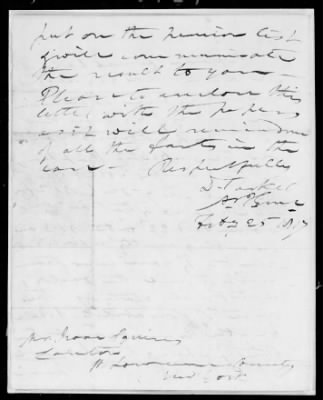 put on the Pension list
I will communicate
the result to you —
Please to enclose this
letter with the papers
as it will remind me
of all the facts in the
case — Respectfully
Feby 25
Mr. Isaac Squires
St Lawrence County
New York